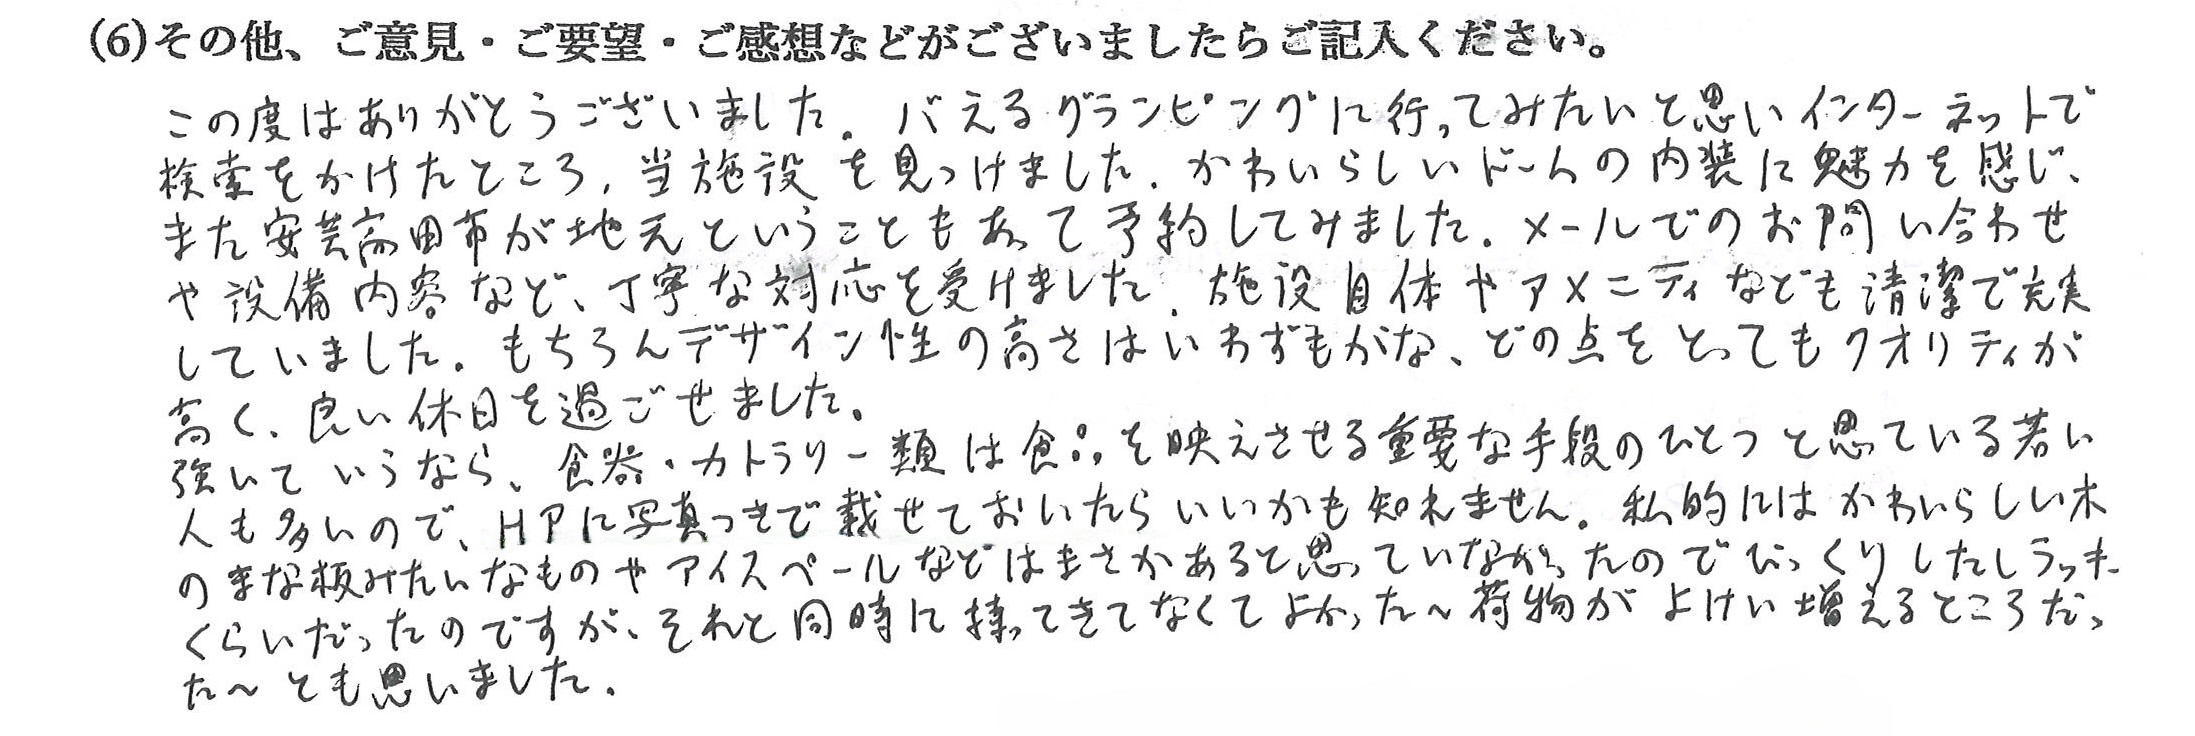 (6)その他、ご意見・ご要望・ご感想などがございましたらご記入ください。
この度はありがとうございました。バえるグランピングに行ってみたいと思いインターネットで
検索をかけたところ、当施設を見つけました。かわいらしいドームの内装に魅力を感じ、
また安芸高田市が地元ということもあって予約してみました。メールでのお問い合わせ
や設備内容など、丁寧な対応を受けました。施設自体やアメニティなども清潔で充実
していました。もちろんデザイン性の高さはいわずもがな、どの点をとってもクオリティが
高く、良い休日を過ごせました。
強いていうなら、食器・カトラリー類は食品を映えさせる重要な手段のひとつと思っている若い
人も多いので、HPに写真つきで載せておいたらいいかも知れません。私的にはかわいらしい木
のまな板みたいなものやアイスペールなどはまさかあると思っていなかったのでびっくりしたしラッキー
くらいだったのですが、それと同時に持ってきてなくてよかった〜荷物がよけい増えるところだっ
た〜とも思いました。